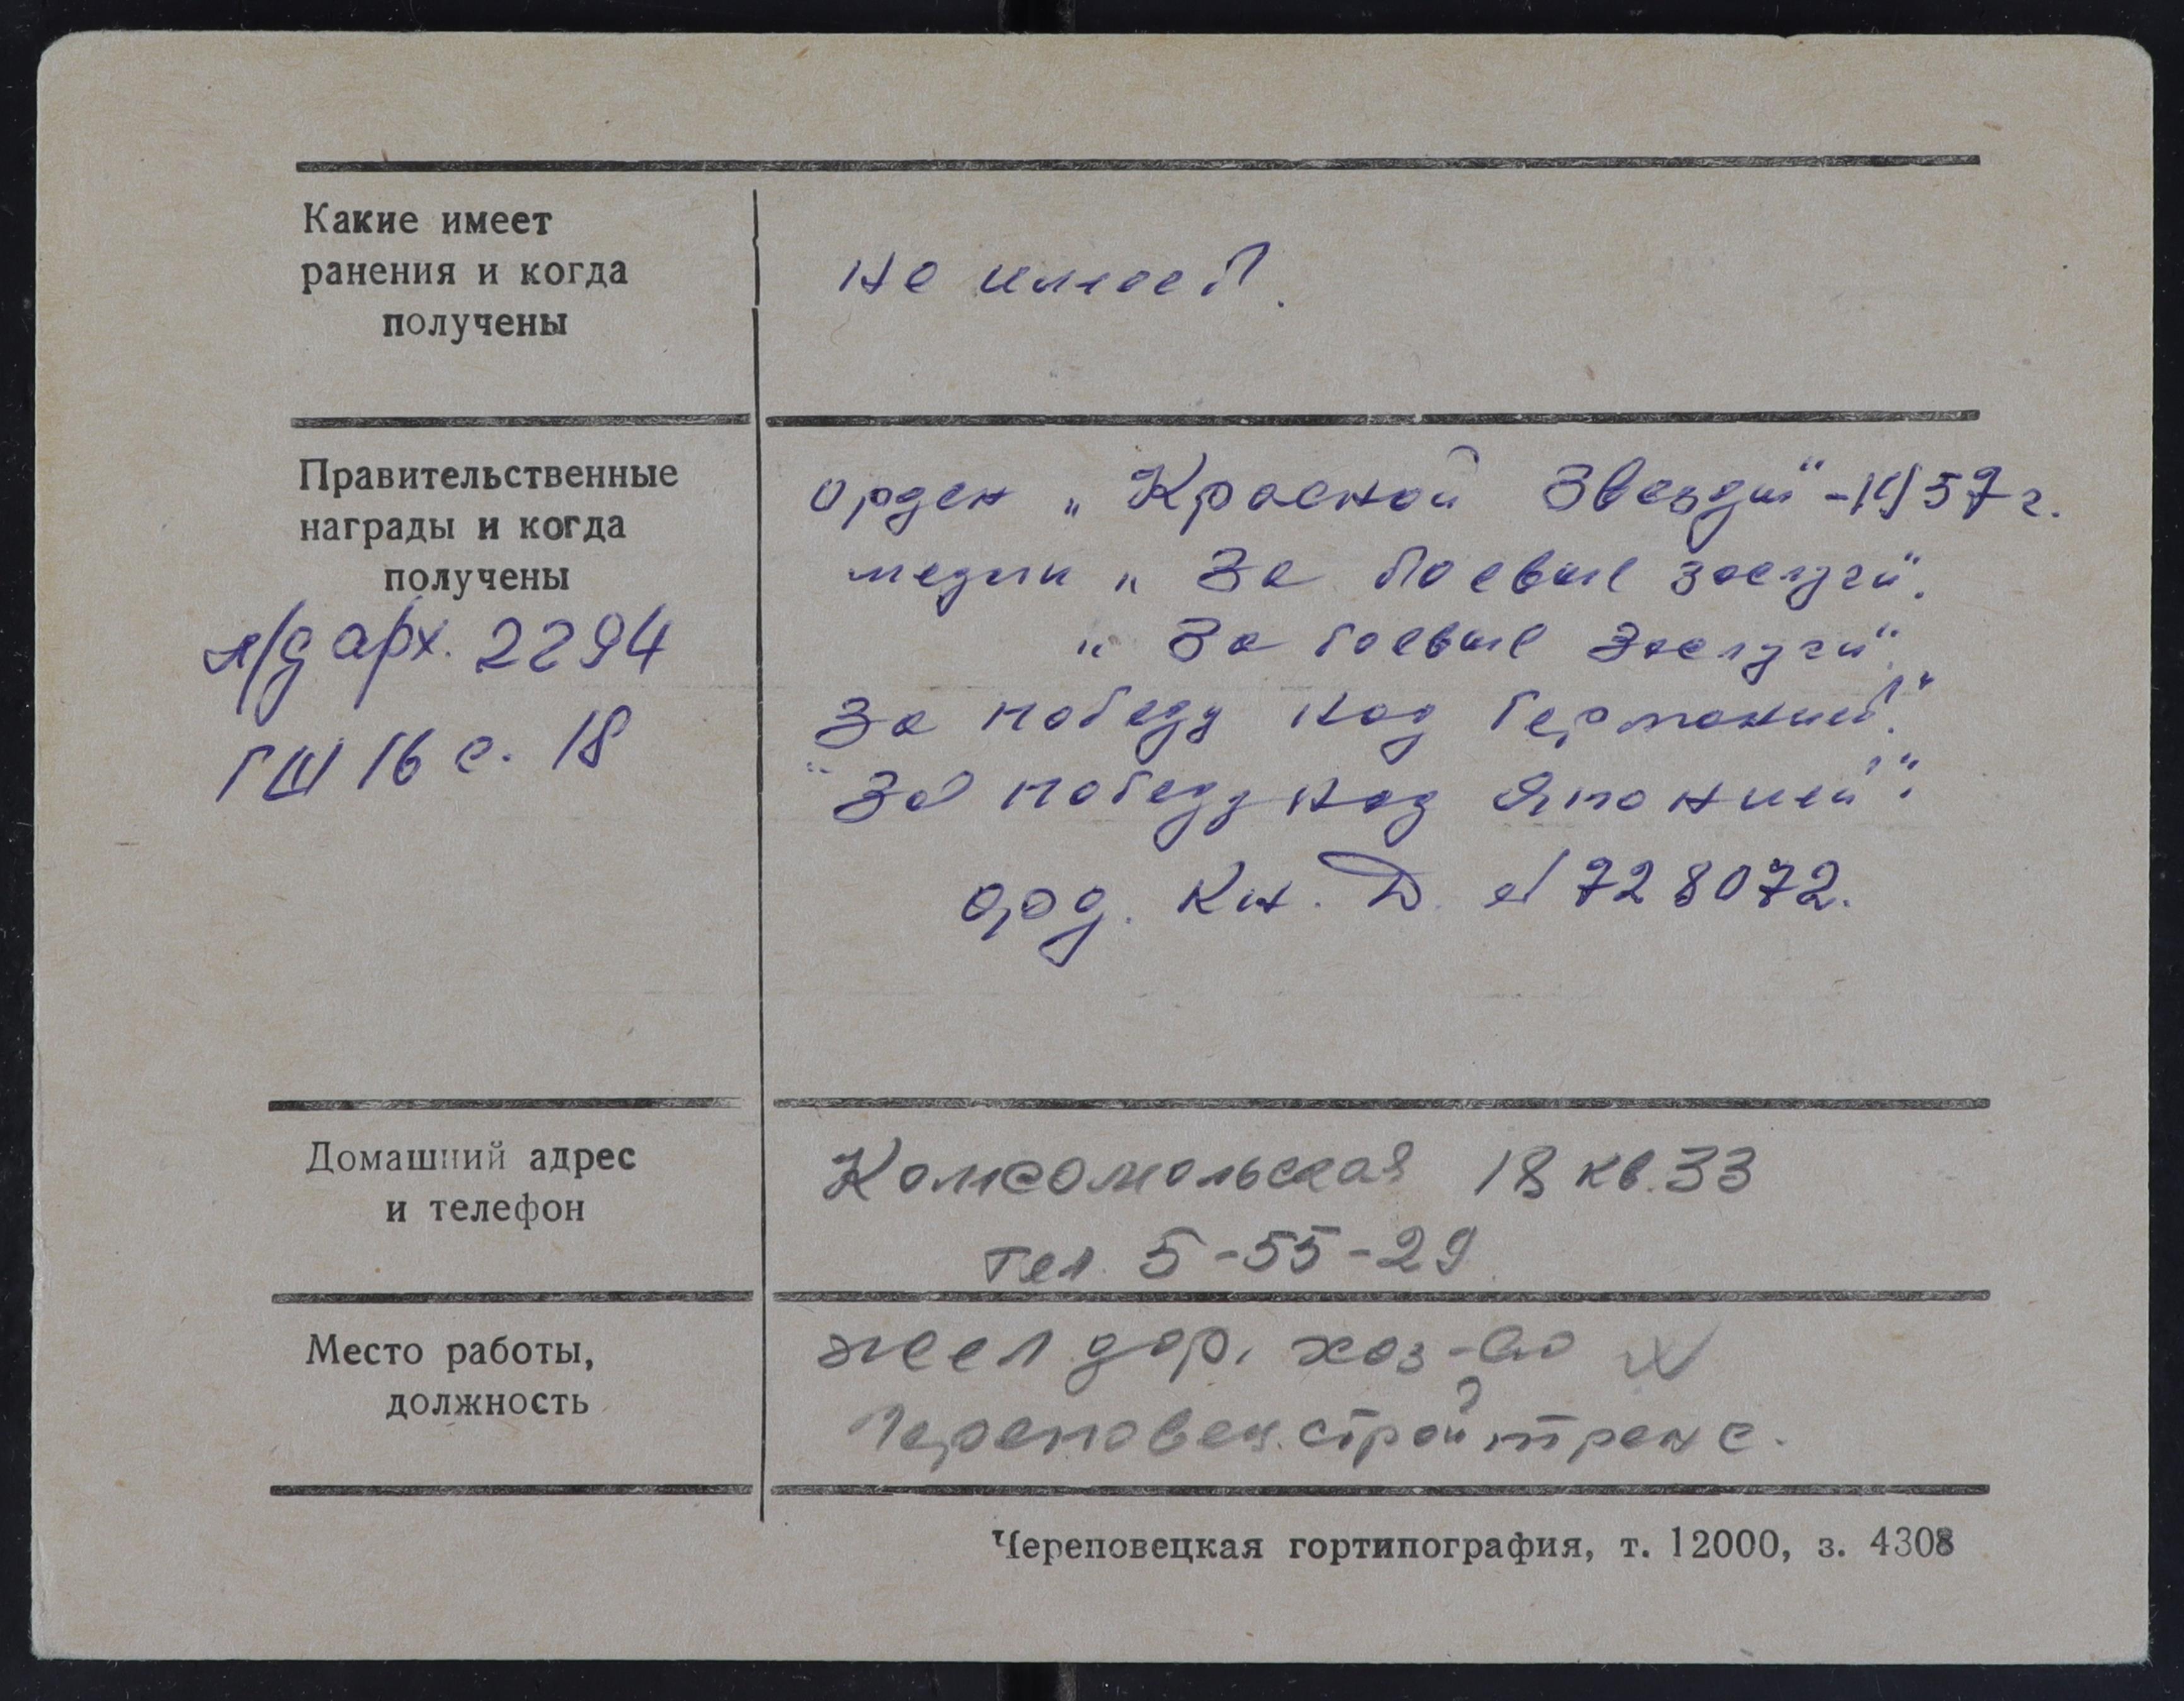 Какие имеет
ранения и когда
получены
не имеет.
Правительственные
награды и когда
получены
л/д арх. 2294
ГШ 16 с. 18
орден „Красной Звезды“ - 1957 г.
медали „За боевые заслуги“.
„За боевые заслуги“.
За победу над Германией“.
"За победу над Японией“.
орд. Кн. Д. № 728072.
Домашний адрес
и телефон
Комсомольская 18 кв. 33
тел. 5-55-29
Место работы,
должность
жел. дор. хоз-во
Череповец. стройтранс.
Череповецкая гортипография, т. 12000, з. 4308